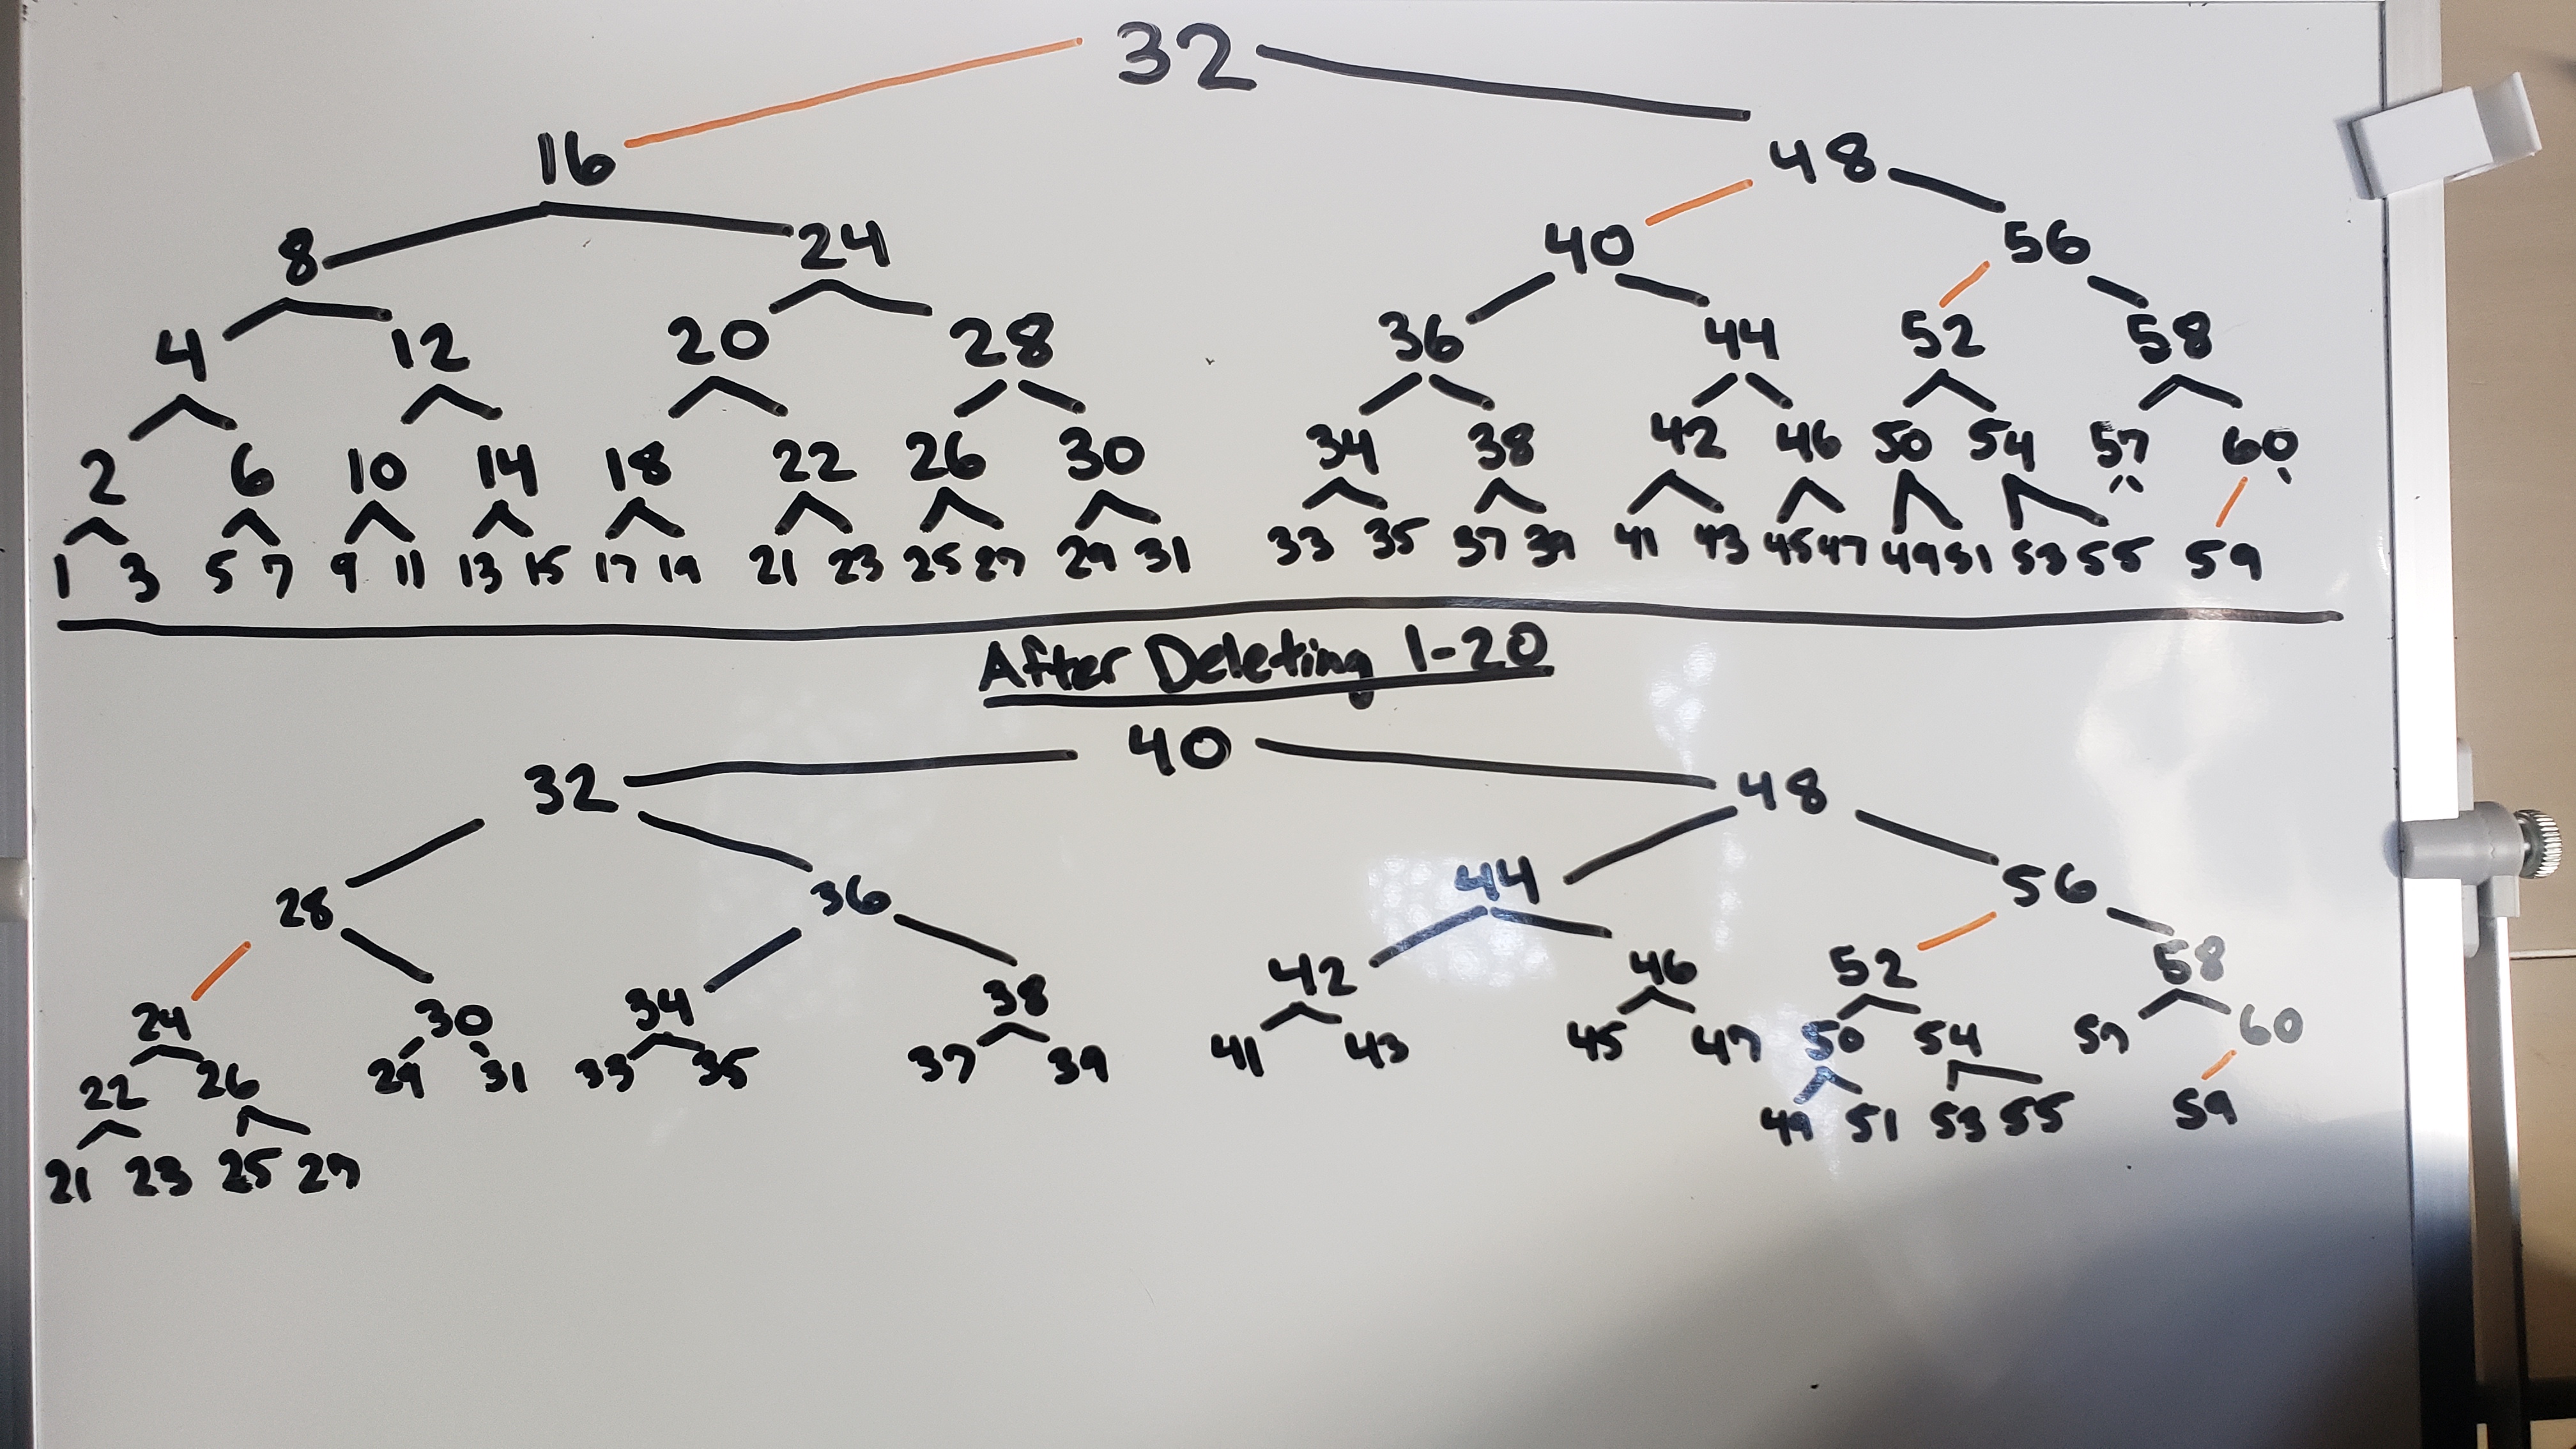 32
16 48
8 24 40 56
4 12 20 28 36 44 52 58
2 6 10 14 18 22 26 30 34 38 42 46 50 54 57 60
1 3 5 7 9 11 13 15 17 19 21 23 25 27 29 31 33 35 37 39 41 43 45 47 49 51 53 55 59
After Deleting 1-20
40
32 48
28 36 44 56
24 30 34 38 42 46 52 58
22 26 29 31 33 35 37 39 41 43 45 47 50 54 57 60
21 23 25 27 49 51 53 55 59